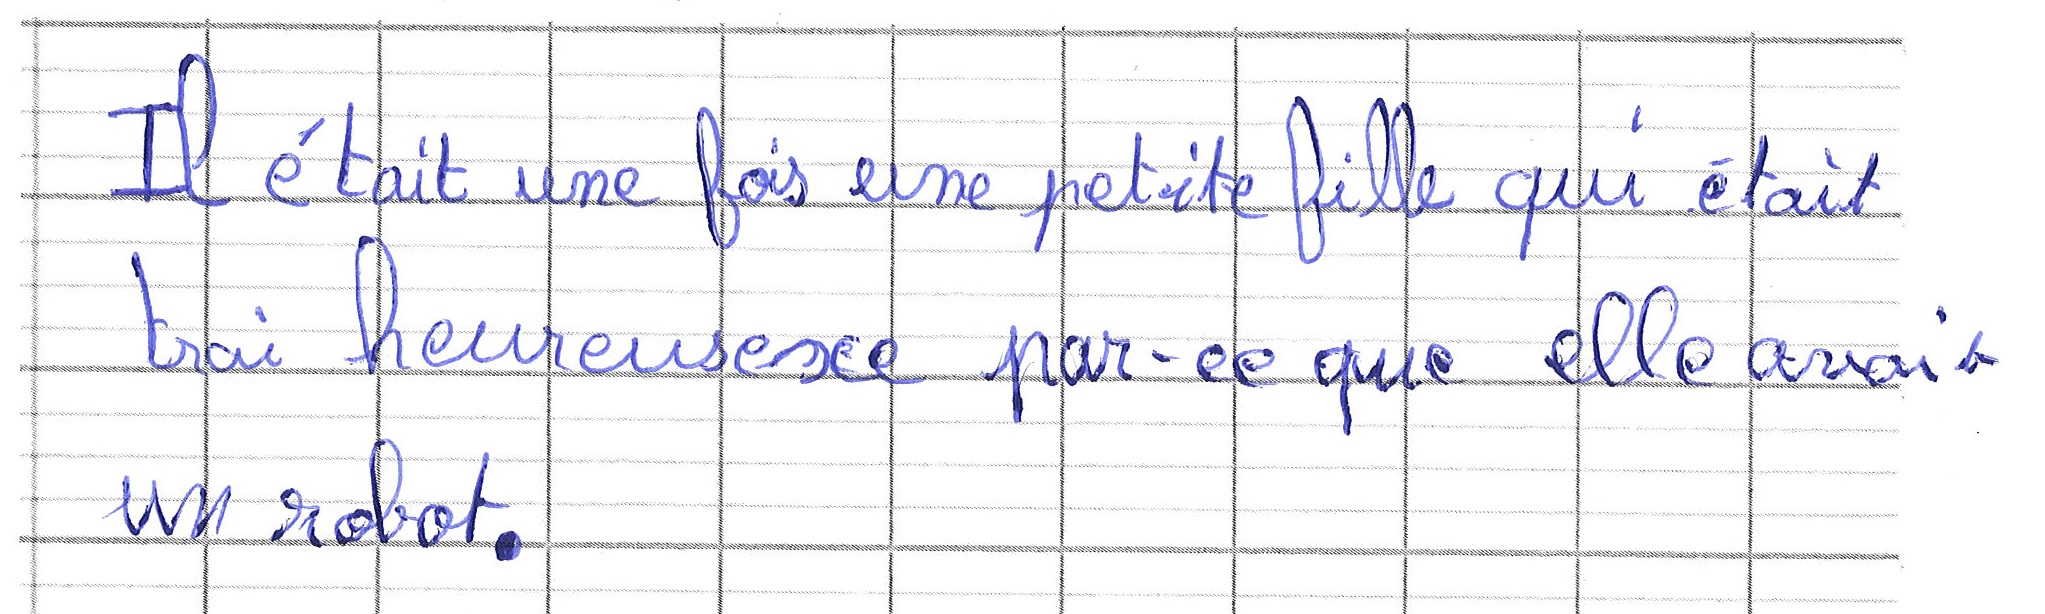 Il était une fois une petite fille qui était
trai heureusexe par-ce que elle avait
un robot.